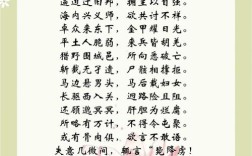 逼迫迁旧邦，拥主以自强。
海内兴义师，欲共讨不祥。
卓众来东下，金甲耀日光。
平土人脆弱，来兵皆胡羌。
猎野围城邑，所向悉破亡。
斩截无孑遗，尸骸相撑拒。
马边悬男头，马后载妇女。
长驱西入关，迥路险且阻。
还顾邈冥冥，肝脾为烂腐。
所略有万计，不得令屯聚。
或有骨肉俱，欲言不敢语。
失意几微间，辄言“毙降虏！